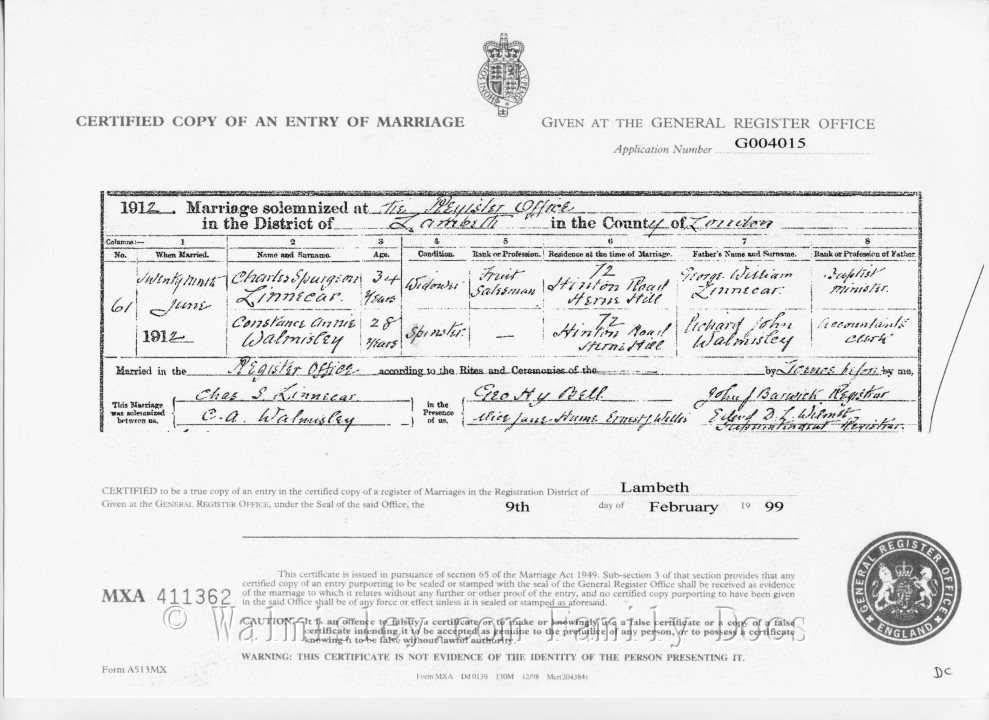 HONI SOIT QUI MAL Y PENSE
CERTIFIED COPY OF AN ENTRY OF MARRIAGE
GIVEN AT THE GENERAL REGISTER OFFICE
Application Number G004015
1912. Marriage solemnized at The Register Office
in the District of Lambeth in the County of London
Columns:— 1 2 3 4 5 6 7 8
No. When Married. Name and Surname. Age. Condition. Rank or Profession. Residence at the time of Marriage. Father's Name and Surname. Rank or Profession of Father.
61
Twenty ninth
June
1912
Charles Spurgeon
Linnecar
34
years
Widower
Fruit
Salesman
72
Hinton Road
Herne Hill
George William
Linnecar
Baptist
Minister.
Constance Annie
Walmisley
28
years
Spinster
—
72
Hinton Road
Herne Hill
Richard John
Walmisley
Accountants
Clerk
Married in the Register Office according to the Rites and Ceremonies of the by Licence before by me,
This Marriage
was solemnized
between us,
Chas S. Linnecar
C. A. Walmisley
in the
Presence
of us,
Geo Hy Bell
Alice Jane Hume Ernest J Willis
John J Barwick Registrar
D. L. Wilmott
Superintendent Registrar.
CERTIFIED to be a true copy of an entry in the certified copy of a register of Marriages in the Registration District of Lambeth
Given at the GENERAL REGISTER OFFICE, under the Seal of the said Office, the 9th day of February 19 99
This certificate is issued in pursuance of section 65 of the Marriage Act 1949. Sub-section 3 of that section provides that any
certified copy of an entry purporting to be sealed or stamped with the seal of the General Register Office shall be received as evidence
of the marriage to which it relates without any further or other proof of the entry, and no certified copy purporting to have been given
in the said Office shall be of any force or effect unless it is sealed or stamped as aforesaid.
MXA 411362
CAUTION:- It is an offence to falsify a certificate or to make or knowingly use a false certificate or a copy of a false
certificate intending it to be accepted as genuine to the prejudice of any person, or to possess a certificate
knowing it to be false without lawful authority.
© Walmsley.com Family Docs
WARNING: THIS CERTIFICATE IS NOT EVIDENCE OF THE IDENTITY OF THE PERSON PRESENTING IT.
GENERAL REGISTER OFFICE
ENGLAND
Form A513MX
Form MXA Dd 0139 130M 12/98 Mcr(204384)
DC